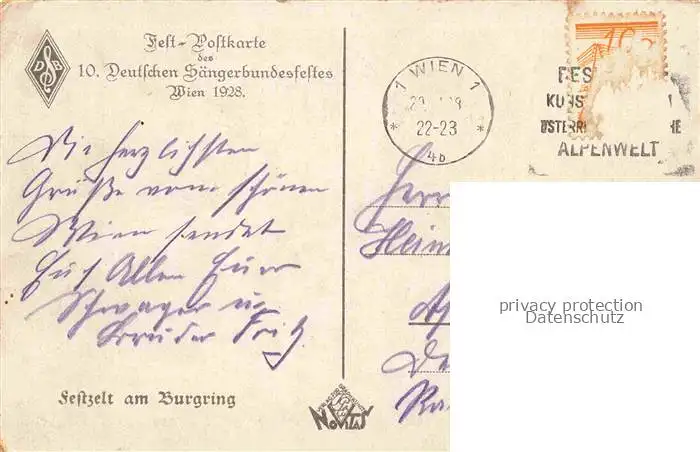 Fest-Postkarte
des
10. Deutschen Sängerbundesfestes
Wien 1928.
DSB
1 WIEN 1
22-23
* 4b *
10
BES
KUNS
ÖSTERR HE
ALPENWELT
Die herzlichsten
Grüße vom schönen
Wien sendet
Euch Allen Euer
Schwager u.
Bruder Fritz
Herr
Hein
privacy protection
Datenschutz
Festzelt am Burgring
NOVITAS